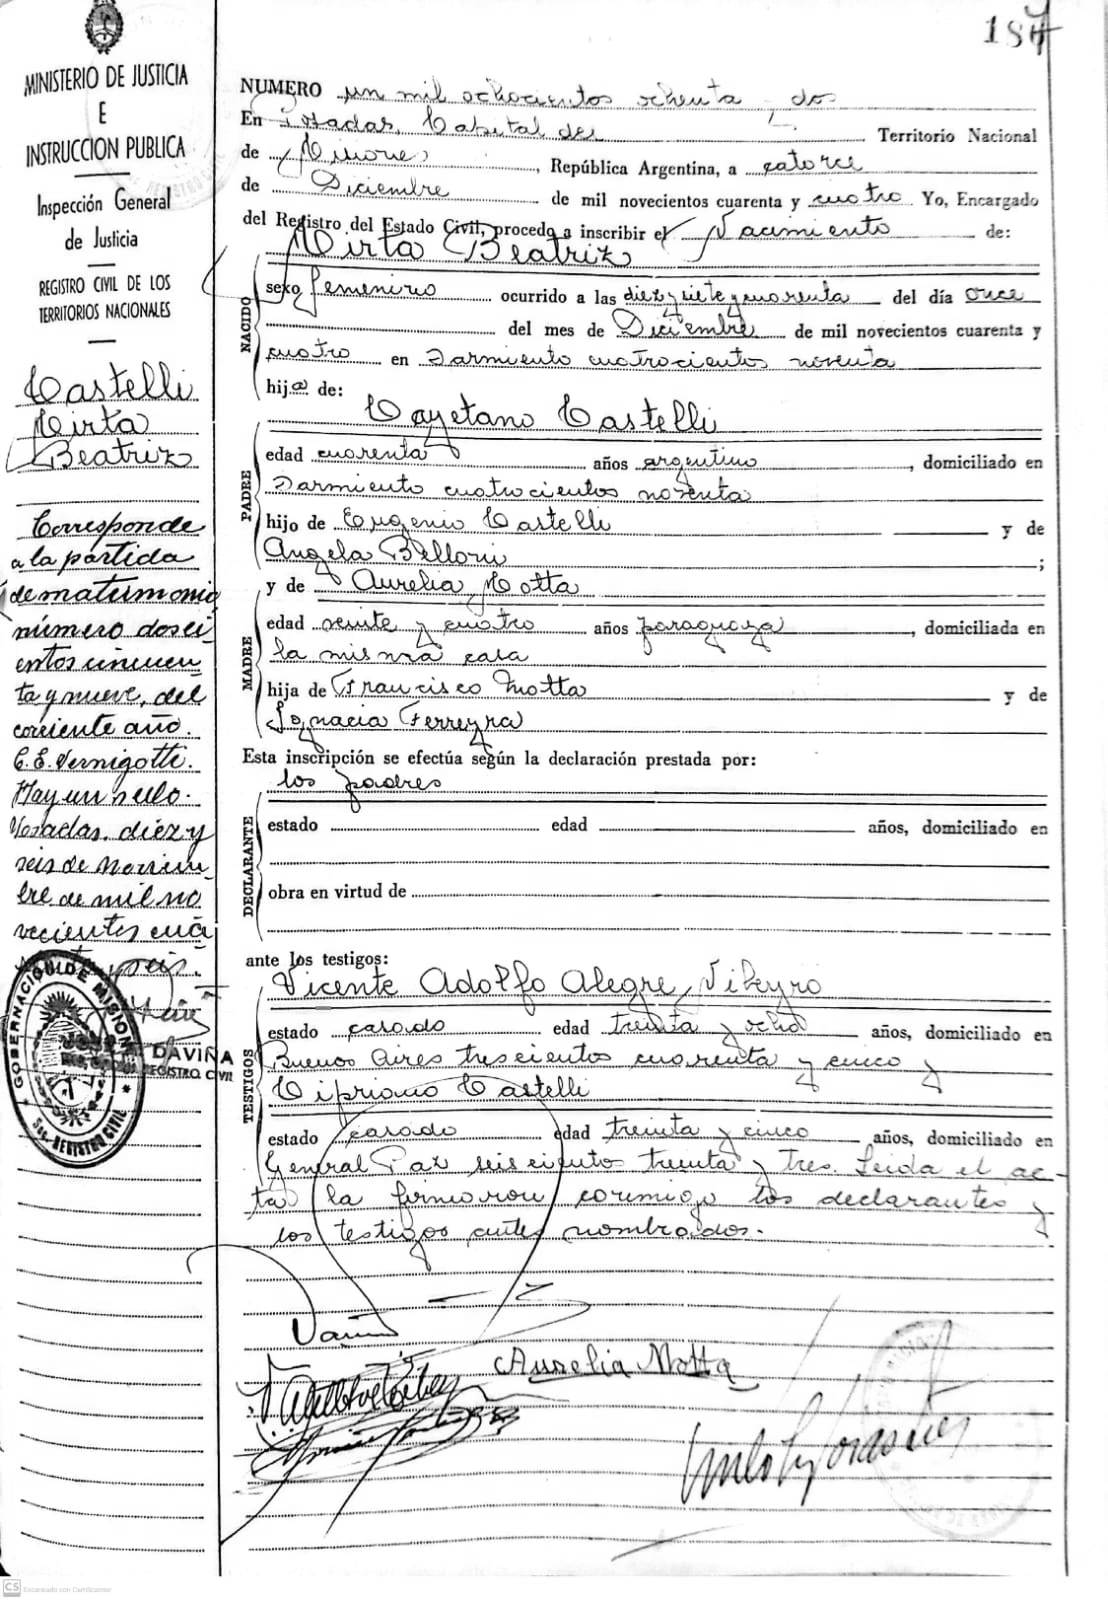 187
MINISTERIO DE JUSTICIA
E
INSTRUCCION PUBLICA
Inspección General
de Justicia
REGISTRO CIVIL DE LOS
TERRITORIOS NACIONALES
Castelli
Mirta
Beatriz
Corresponde
a la partida
de matrimonio
número dosci
entos cincuen
ta y nueve, del
corriente año.
C. E. Vernigotti.
Hay un sello.
Posadas, diez y
seis de Noviem-
bre de mil no
vecientos cua
y seis.
GOBERNACION DE MISIONES
REGISTRO CIVIL
DAVIÑA
REGISTRO CIVIL
NUMERO un mil ochocientos ochenta y dos
En Posadas, Capital del Territorio Nacional
de Misiones, República Argentina, a catorce
de Diciembre de mil novecientos cuarenta y cuatro Yo, Encargado
del Registro del Estado Civil, procedo a inscribir el Nacimiento de:
Mirta Beatriz
NACIDO
sexo femenino ocurrido a las diez y siete y cuarenta del día once
del mes de Diciembre de mil novecientos cuarenta y
cuatro en Sarmiento cuatrocientos noventa
hija de:
Cayetano Castelli
PADRE
edad cuarenta años argentino, domiciliado en
Sarmiento cuatrocientos noventa
hijo de Eugenio Castelli y de
Angela Belloni;
y de Aurelia Motta
MADRE
edad veinte y cuatro años paraguaya, domiciliada en
la misma casa
hija de Francisco Motta y de
Ignacia Ferreyra
Esta inscripción se efectúa según la declaración prestada por:
los padres
DECLARANTE
estado edad años, domiciliado en
obra en virtud de
ante los testigos:
Vicente Adolfo Alegre Ribeyro
TESTIGOS
estado casado edad treinta y ocho años, domiciliado en
Buenos Aires trescientos cuarenta y cinco y
Cipriano Castelli
estado casado edad treinta y cinco años, domiciliado en
General Paz seiscientos treinta y tres. Leida el ac-
ta la firmaron conmigo los declarantes y
los testigos antes nombrados.-
Aurelia Motta
CS Escaneado con CamScanner